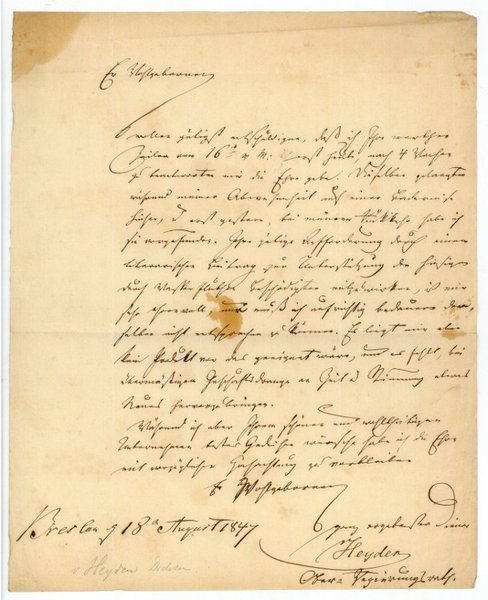 Ew Wohlgeboren
wollen gütigst entschuldigen, daß ich Ihre werthen
Zeilen vom 16t v M: erst heute, nach 4 Wochen
zu beantworten mir die Ehre gebe. Dieselben gelangten
während meiner Abwesenheit auf einer Badereise
hieher, u erst gestern, bei meiner Rückkehr habe ich
sie vorgefunden. Ihre gütige Aufforderung durch einen
literarischen Beitrag zur Unterstützung der hiesigen
durch Wasserfluthen Beschädigten mitzuwirken, ist mir
sehr ehrenvoll, nur muß ich aufrichtig bedauern der-
selben nicht entsprechen zu können. Es liegt mir eben
kein Produkt vor das geeignet wäre, und es fehlt, bei
übermäßigem Geschäftsdrange an Zeit u Stimmung etwas
Neues hervorzubringen.
Während ich aber Ihrem schönen und wohlthätigen
Unternehmen bestes Gedeihen wünsche habe ich die Ehre
mit vorzüglicher Hochachtung zu verbleiben
Ew Wohlgeboren
Breslau 18t August 1847
ganz ergebenster Diener
Heyden
Ober-Regierungsrath.
v Heyden